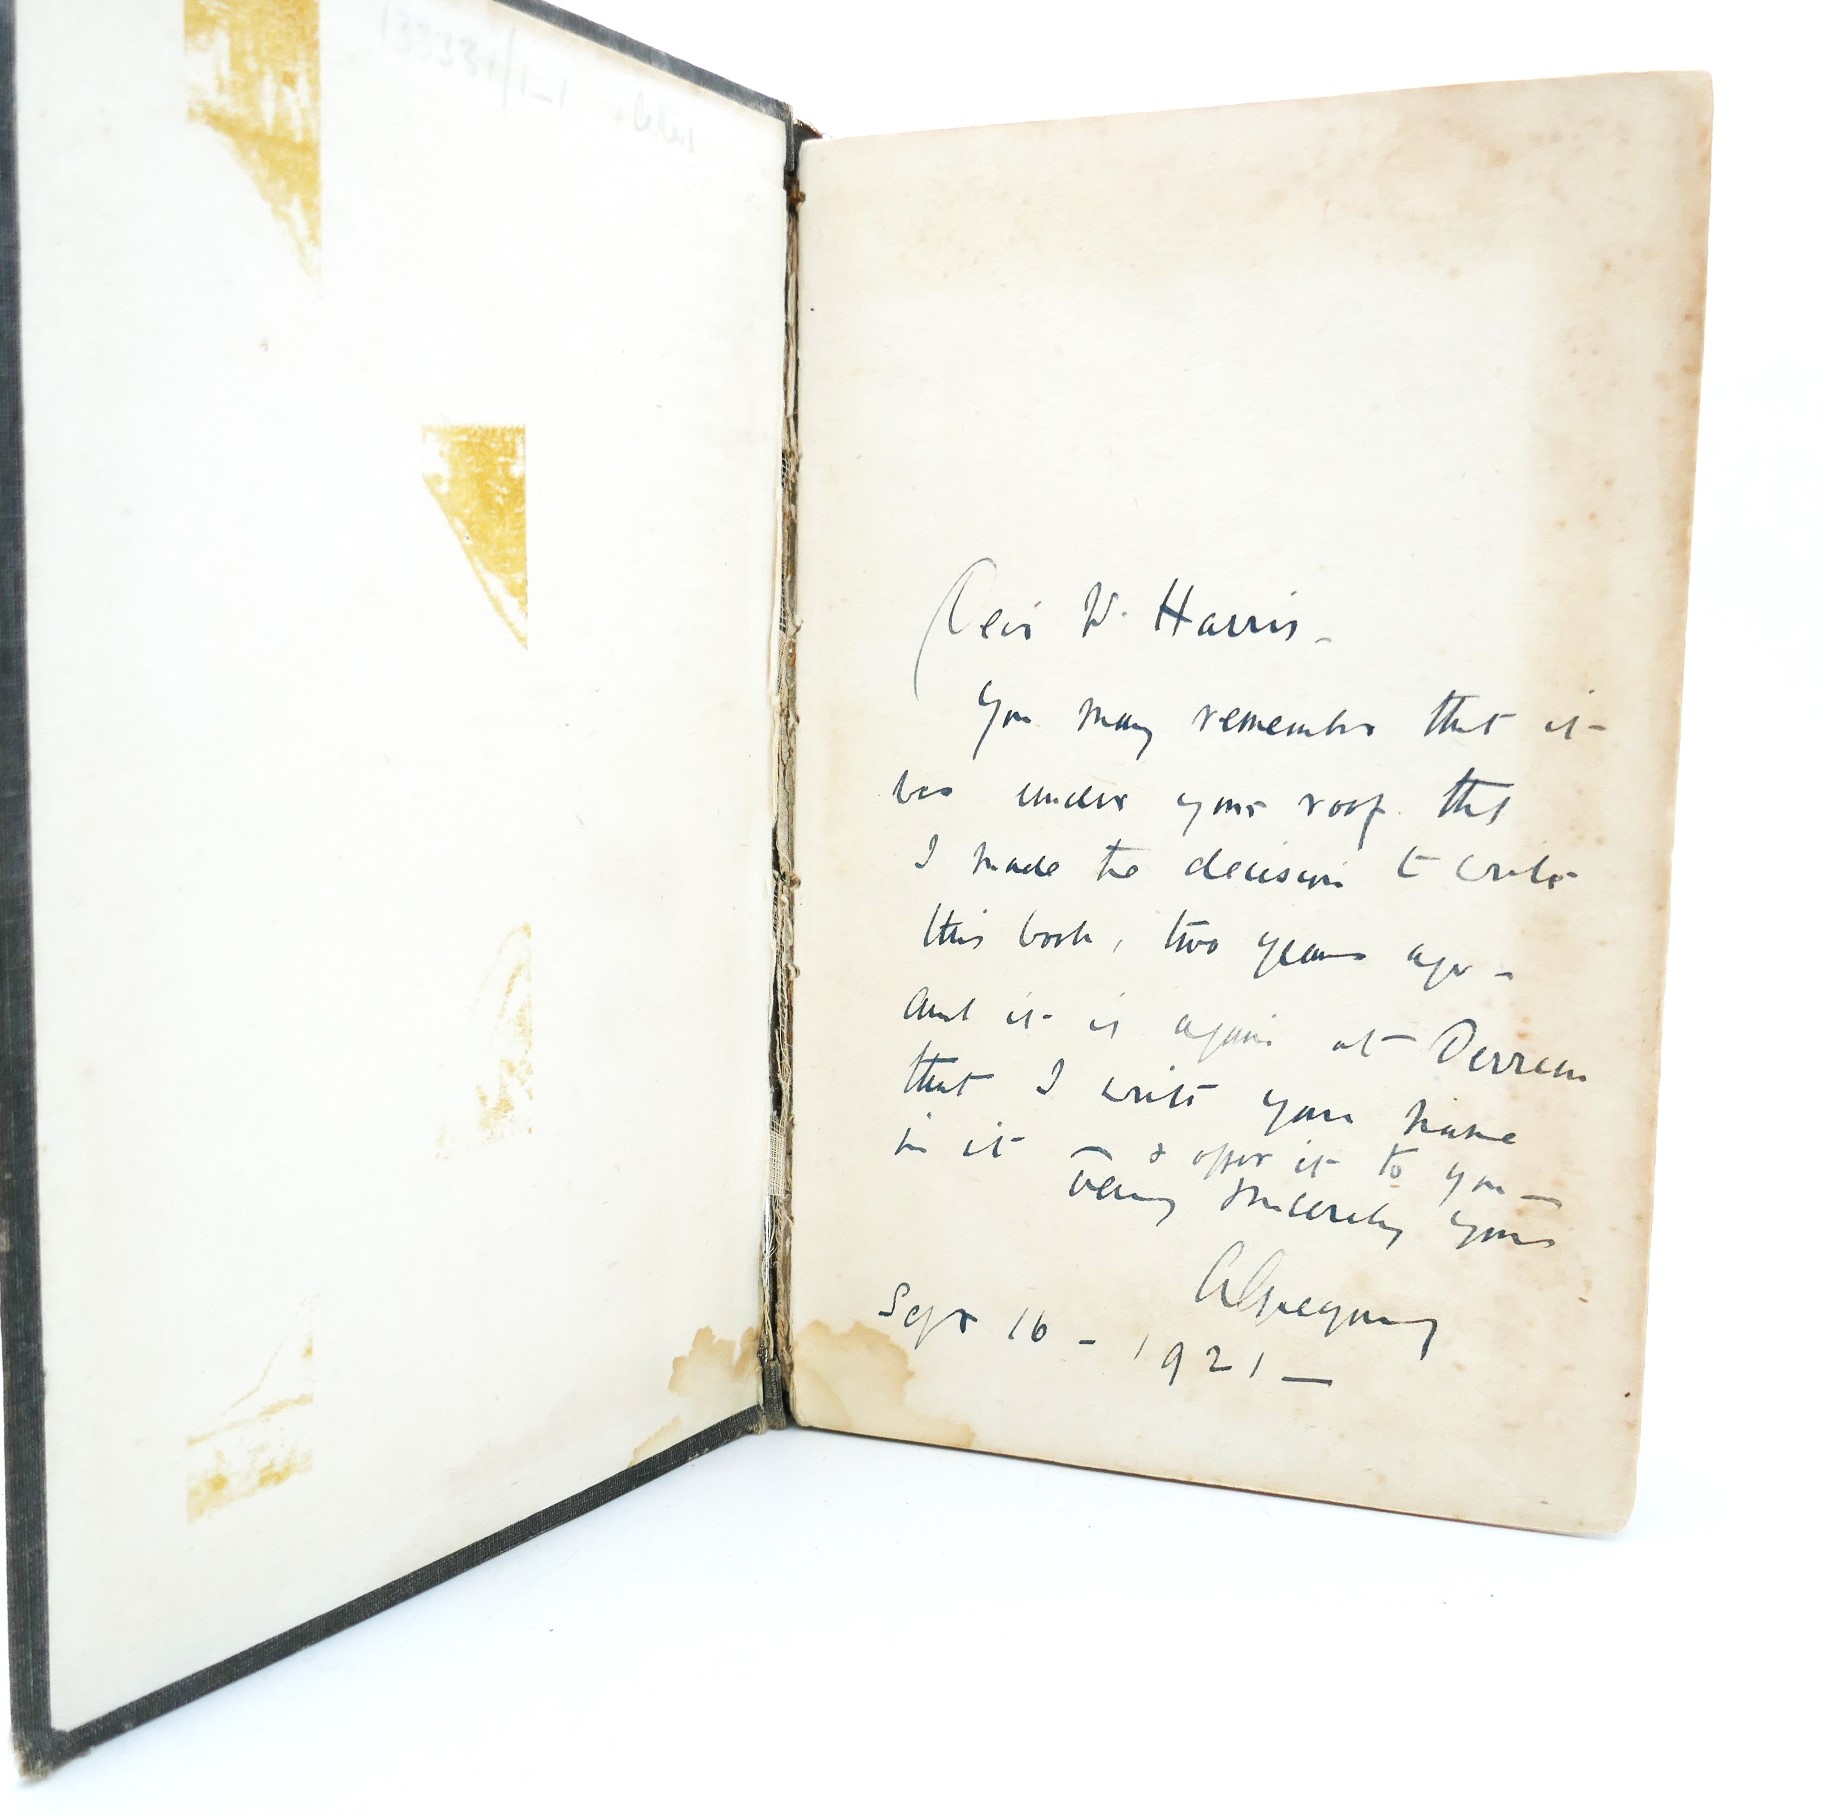 13333/1-1
Dear Mr Harris -
You may remember that it
was under your roof that
I made the decision to write
this book, two years ago -
and it is again at Derreen
that I write your name
in it & offer it to you -
Very sincerely yours
A Gregory
Sept 16 - 1921 -